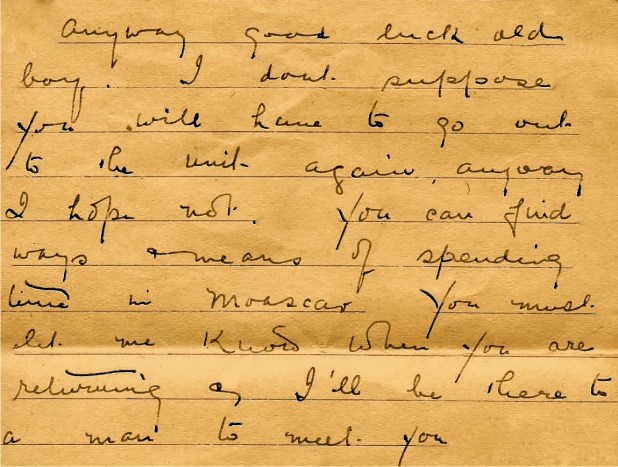 Anyway good luck old
boy. I dont suppose
you will have to go out
to the unit again, anyway
I hope not. You can find
ways & means of spending
time in Moascar You must
let me know when you are
returning & I'll be there to
a man to meet you